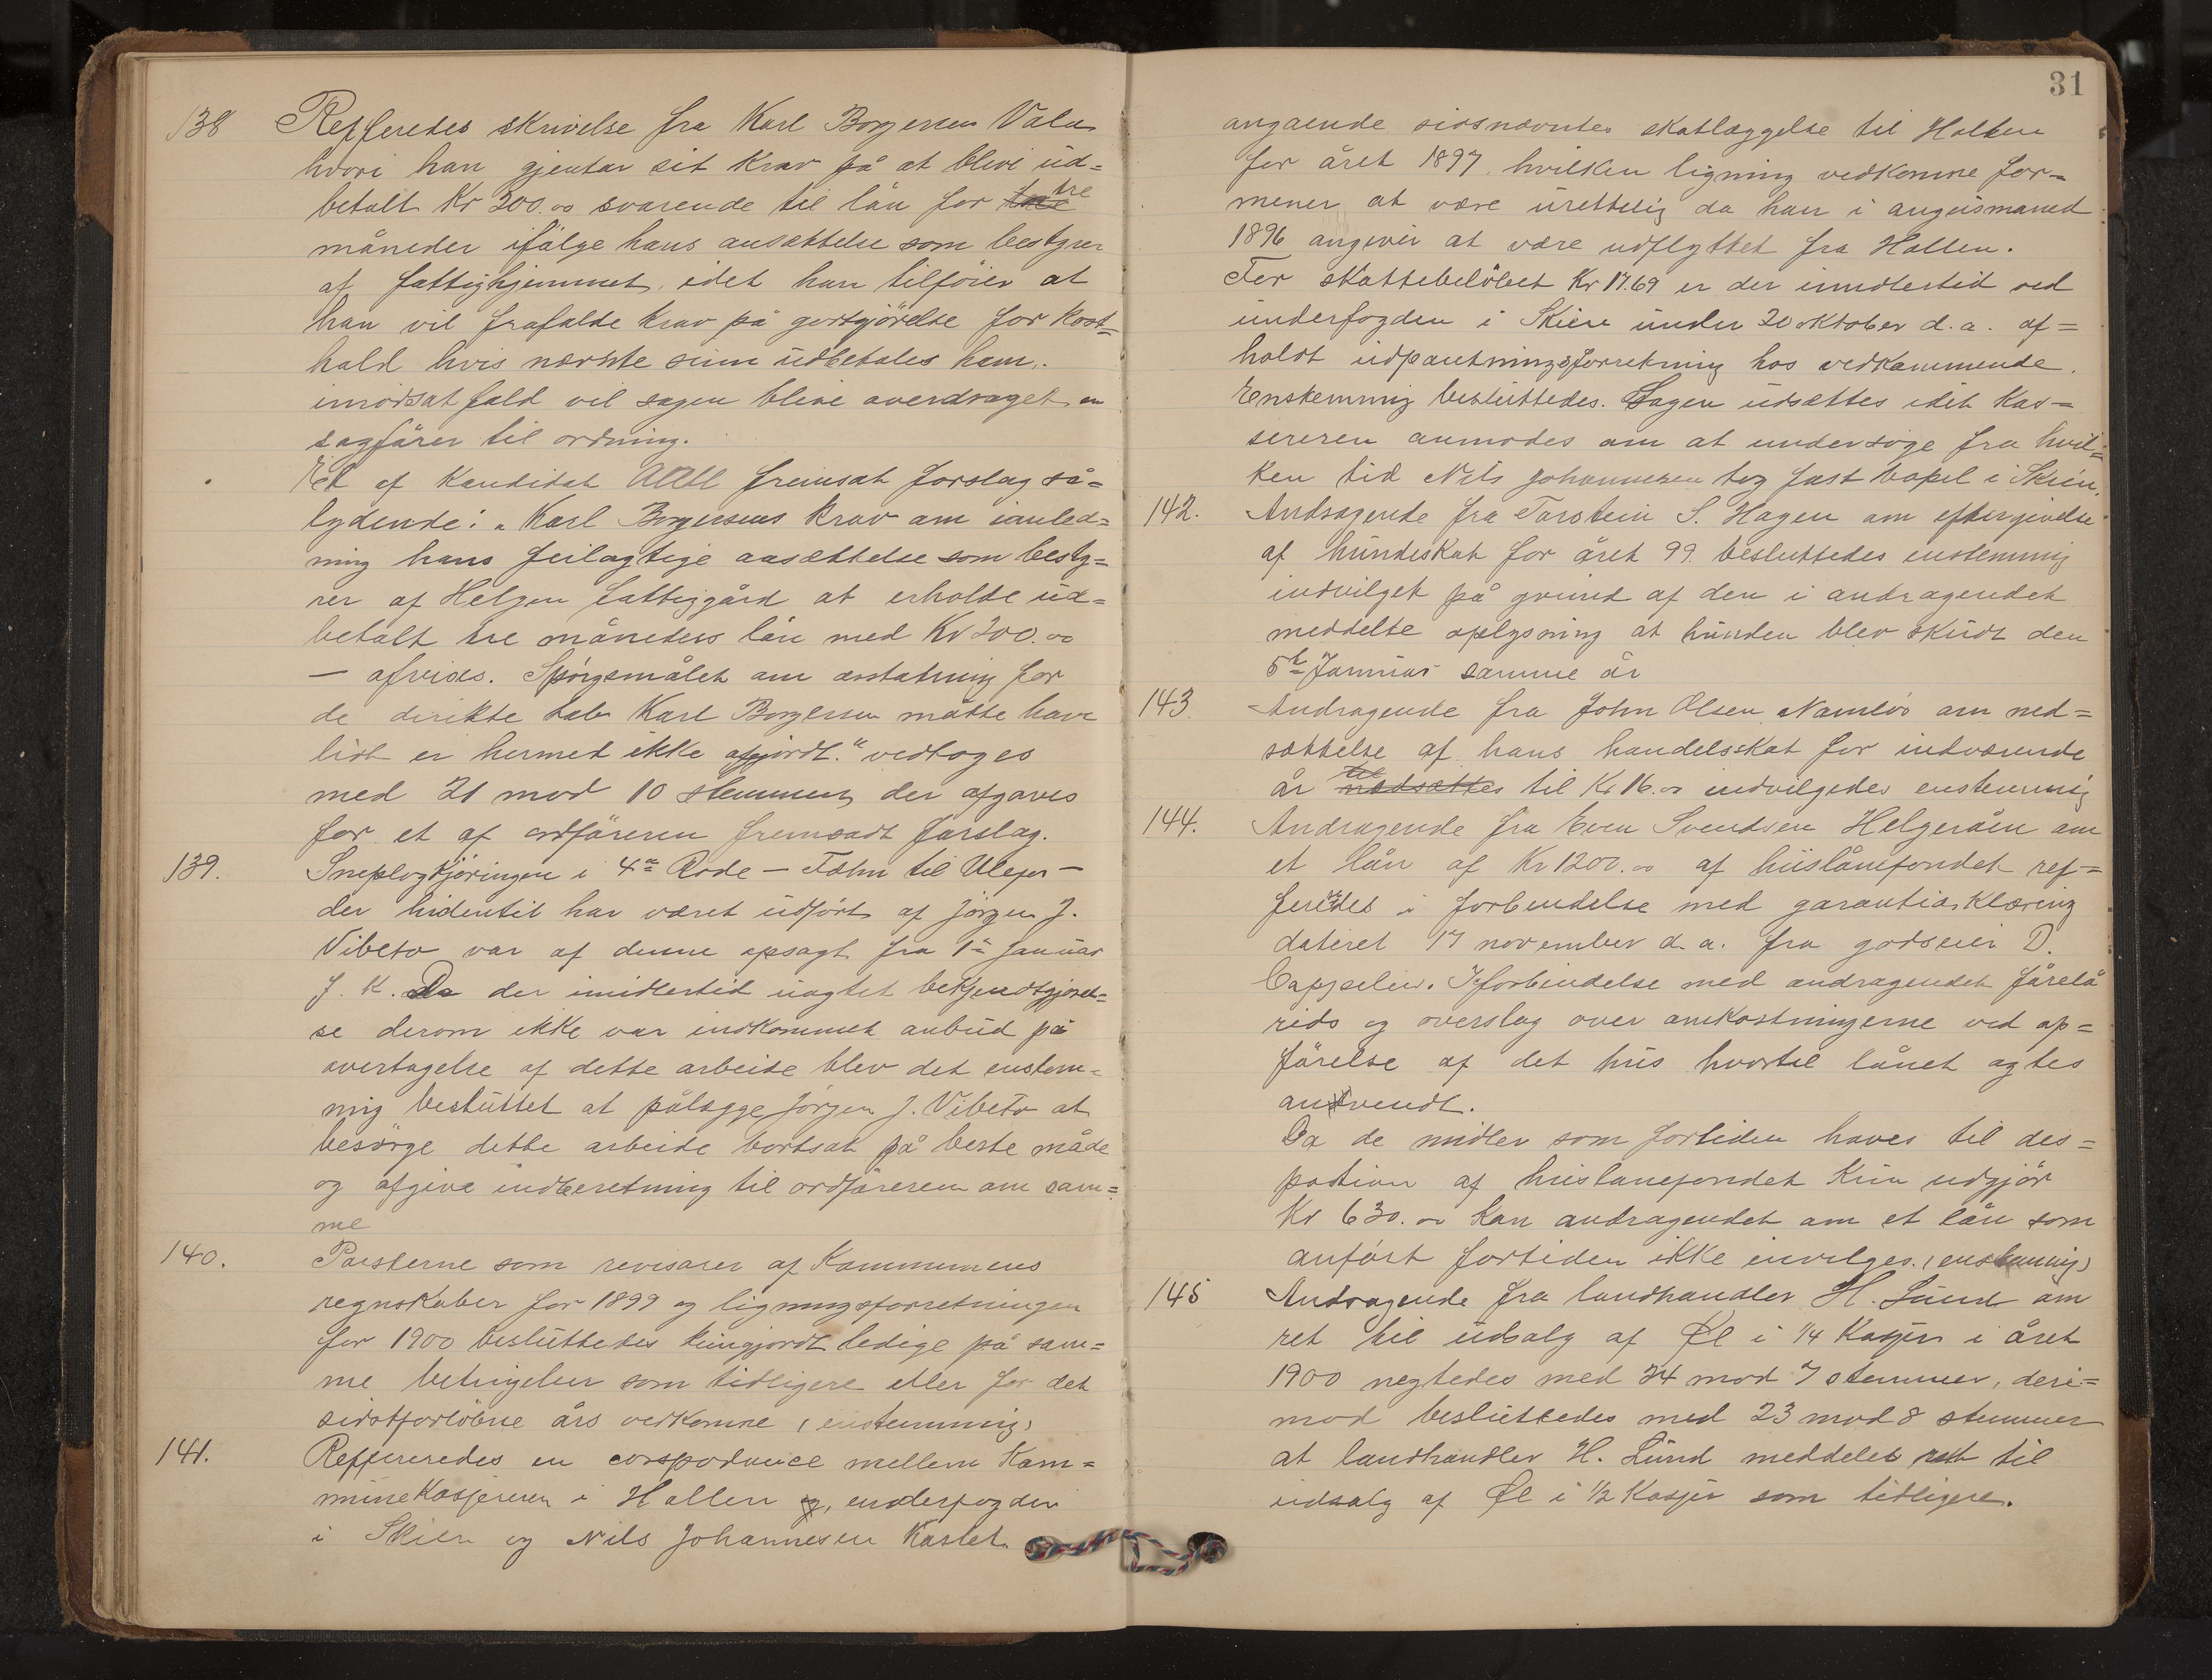 138 Refferedes skrivelse fra Karl Borgersen Vala
hvori han gjentar sit krav på at blive ud=
betalt Kr 200.00 svarende til lån for tre
måneder ifälge hans ansættelse som bestyrer
af fattighjemmet, idet han tilföier at
han vil frafalde krav på godtgjörelse for kost=
hald hvis nævnte sum udbetales ham.
imodsat fald vil sagen blive averdraget en
sagfärer til ordning.
Et af Kandidat Aall fremsat forslag så=
lydende: "Karl Borgersens krav am ianled=
ning hans feilagtige aasættelse som besty=
rer af Helgen fattiggård at erholde ud=
betalt tre måneders lån med Kr 200.00
— afvises. Spörgsmålet am erstatning for
de direkte tab Karl Borgersen måtte have
lidt er hermed ikke afgjordt." vedtoges
med 21 mod 10 stemmer der afgaves
for et af ordföreren fremsadt forslag.
139. Sneplogkjöringen i 4de Rode — Fæhn til Ulefos —
der hidentil har været udfört af Jörgen J.
Vibeto var af denne opsagt fra 1ste Januar
f. K. Da der imidlertid uagtet bekjendtgjörel=
se derom ikke var indkommet anbud på
overtagelse af dette arbeide blev det enstem=
mig besluttet at pålægge Jörgen J. Vibeto at
besörge dette arbeide bortsat på beste måde
og afgive indberetning til ordföreren om sam=
me
140. Posterne som revisorer af Kommunens
regnskaber for 1899 og ligningsforretningen
for 1900 besluttedes kungjordt ledige på sam=
me betingelser som tidligere eller for det
sidstforlöbne års vedkomne (enstemmig)
141. Reffereredes en corspodance mellem Kom=
munekasjereren i Hollen og, underfogden
i Skien og Nils Johannesen Kaslet
31
angaende sidsnævntes skatlæggelse til Hollen
for året 1897, hvilken ligning vedkomne for=
mener at være urettelig da han i augustmaned
1896 angivir at være udflyttet fra Hollen.
For skattebelöbet Kr 17.69 er der imidlertid ved
underfogden i Skien under 20 oktober d.a. af=
holdt udpantningsforretning hos vedkammende.
Enstemmig besluttedes. Sagen udsættes idet Kas=
sereren anmodes om at undersöge fra hvil=
ken tid Nils Johannesen tog fast bopel i Skien.
142. Andragende fra Torstein S. Hagen am eftergivelse
af hundeskat for året 99. besluttedes enstemmig
indvilget på grund af den i andragendet
meddelte oplysning at hunden blev skudt den
5te Januar samme år
143 Andragende fra John Olsen Namlös am ned=
sættelse af hans handelsskat for indværende
år til nedsættes til Kr 16.00 indvilgedes enstemmig
144. Andragende fra Even Svendsen Helgeråen am
et lån af Kr 1200.00 af huslånefondet ref=
fereredes i forbendelse med garantiærklæring
dateret 17 november d.a. fra godseier D.
Cappelen. I forbindelse med andragendet förelå
rids og overslag over amkostningerne ved op=
förelse af det hus hvortil lånet agtes
anvendt.
Da de midler som fortiden haves til des=
position af huslanefondet kun udgjör
Kr 630.00 kan andragendet am et lån som
anfört fortiden ikke invilges. (enstemmig)
145 Andragende fra landhandler H. Lund am
ret til udsalg af Øl i 1/4 Kasjer i året
1900 negtedes med 24 mod 7 stemmer, deri=
mod besluttedes med 23 mod 8 stemmer
at landhandler H. Lund meddeles ret til
udsalg af Øl i 1/2 Kasjer som tidligere.